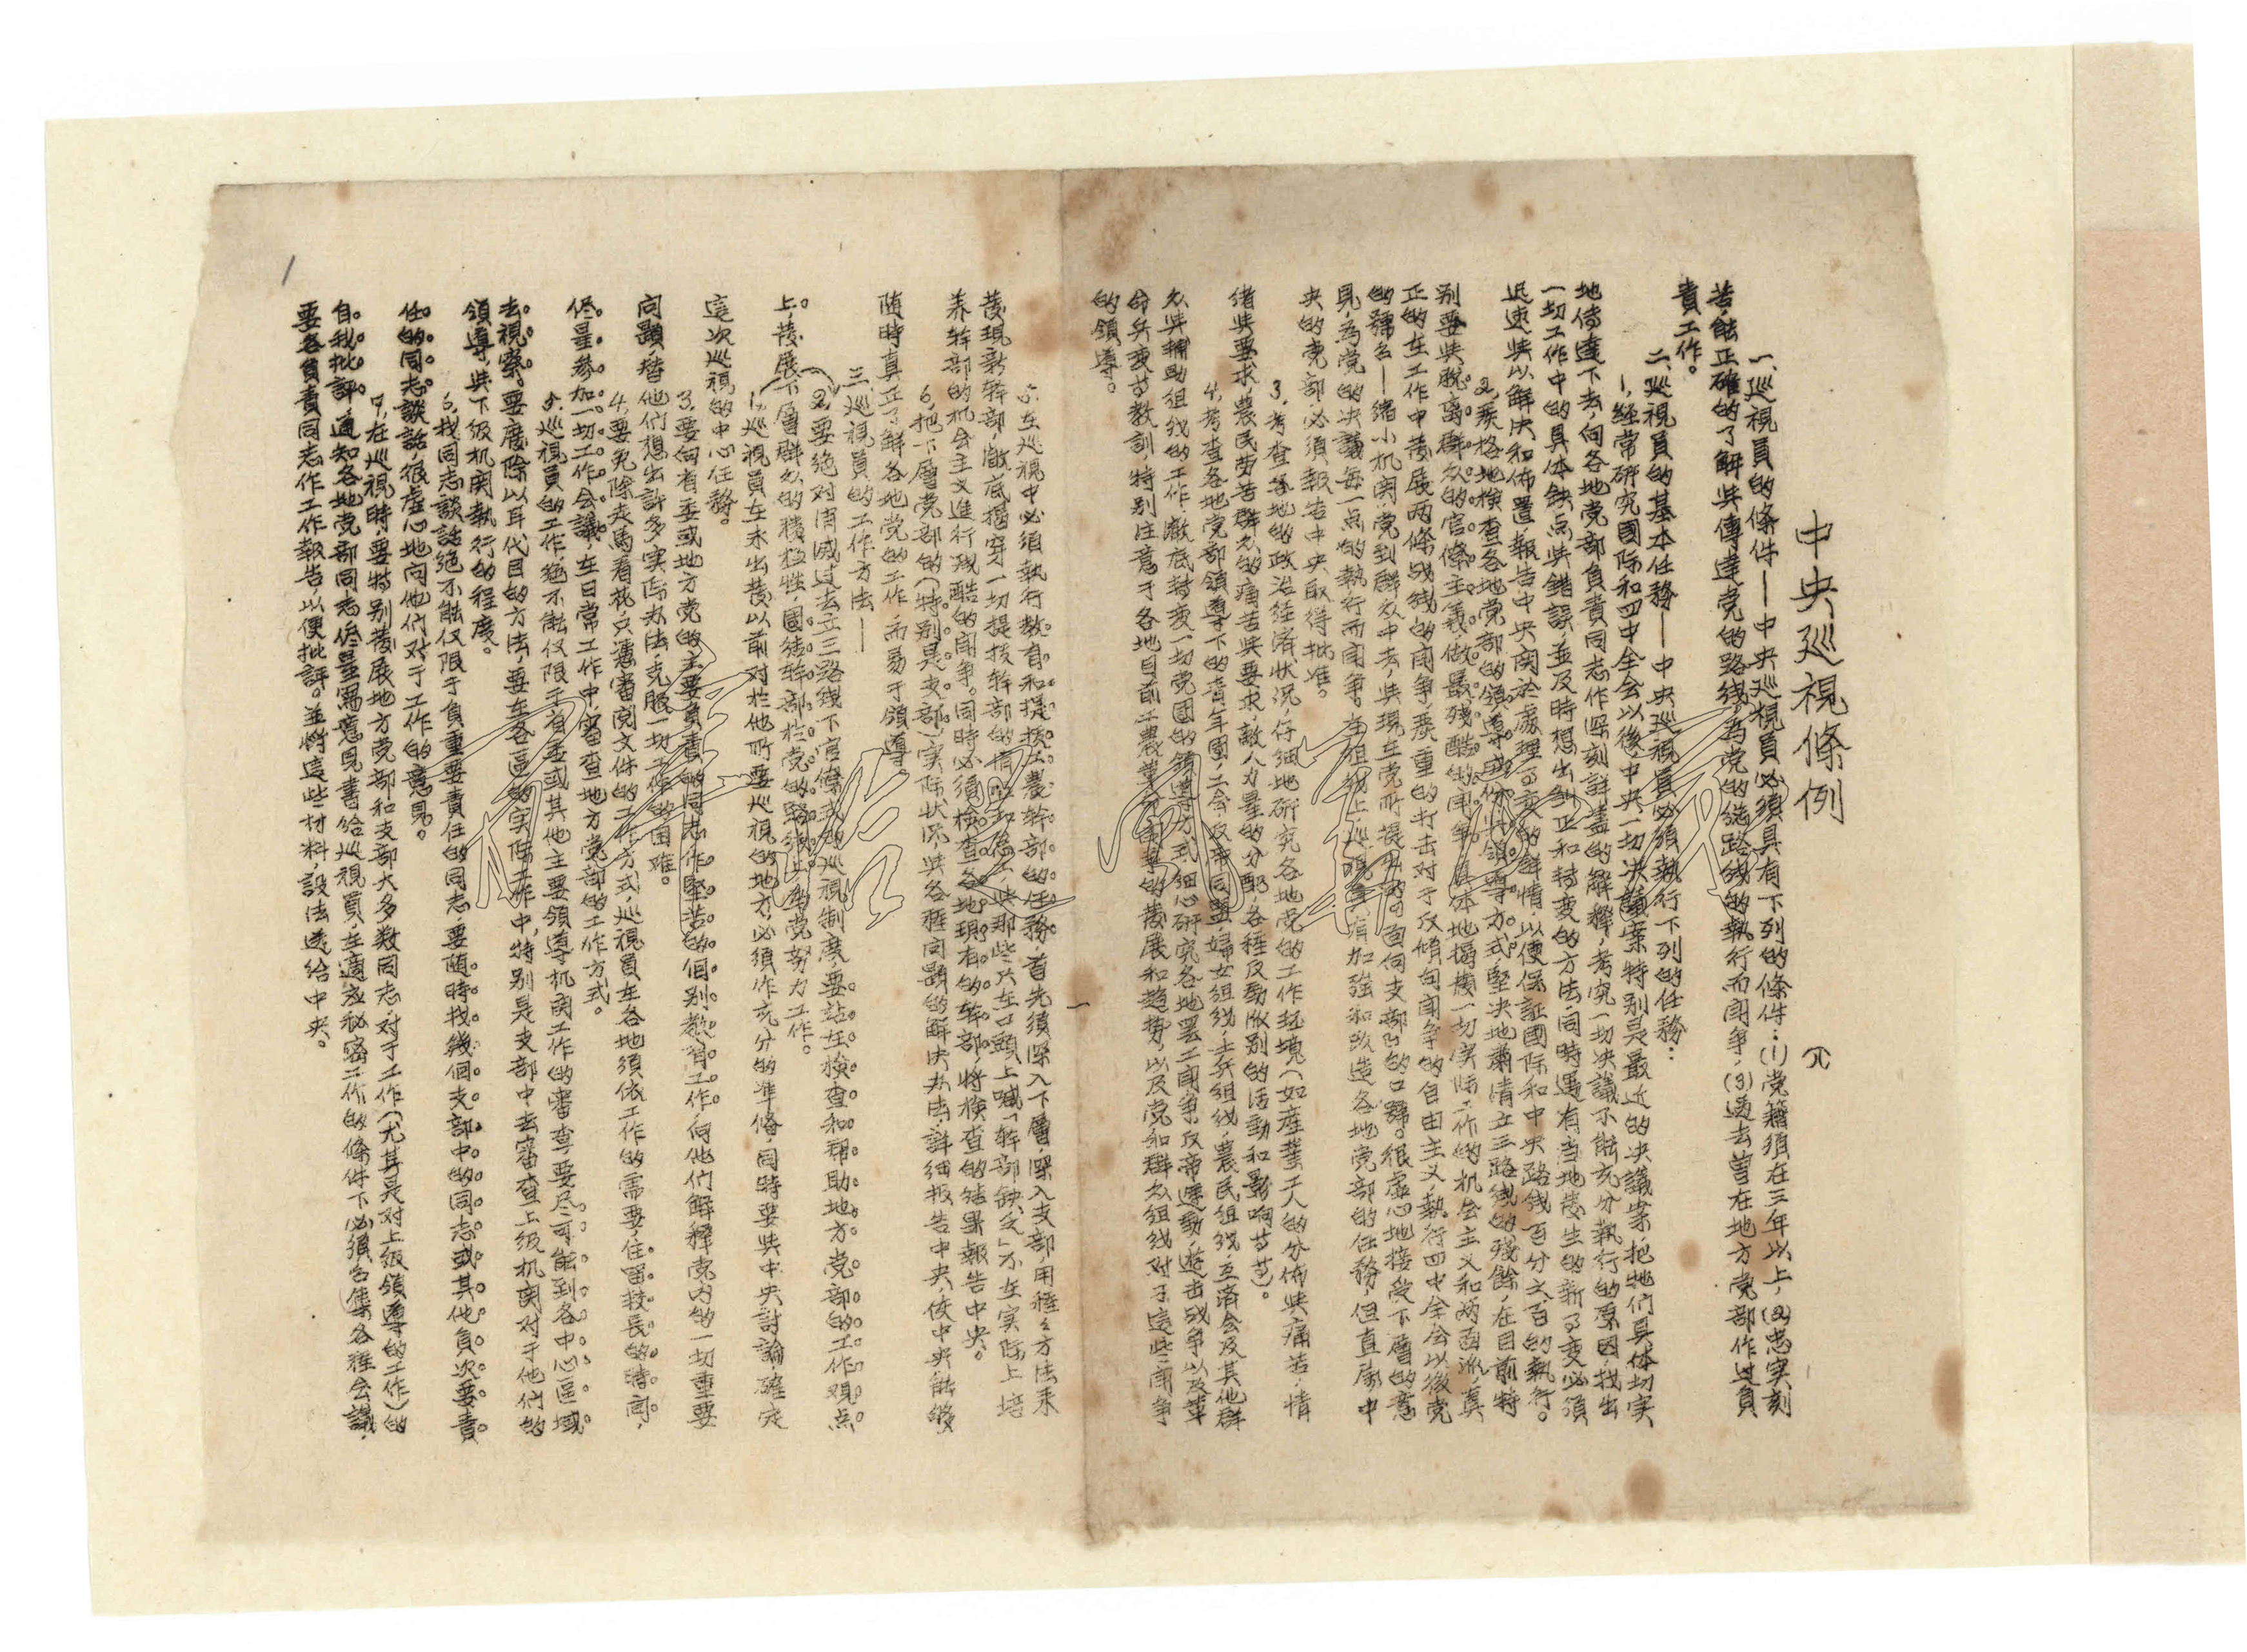 中央巡視條例
(八)
一、巡視員的條件——中央巡視員必須具有下列的條件：(1)党籍須在三年以上，(2)忠实刻
苦，能正確的了解與傳達党的路綫，為党的總路綫的執行而闘爭，(3)過去曾在地方党部作过負
責工作。
二、巡視員的基本任務——中央巡視員必須執行下列的任務：
1、經常研究國际和四中全会以後中央一切決議案特别是最近的決議案，把牠们具体切实
地傳達下去，向各地党部負責同志作深刻詳盡的解釋，考究一切決議不能充分執行的原因，找出
一切工作中的具体缺点與錯誤，並及時想出糾正和轉变的方法，同時遇有当地發生的新事变必須
迅速與以解決和佈置，報告中央関於處理事变的詳情，以便保証國际和中央路綫百分之百的執行。
2、嚴格地檢查各地党部的領導成份與領導方式，堅決地肅清立三路綫的殘餘，在目前特
别要與脱离群众的官僚主義，做最殘酷的闘爭，具体地揭發一切实际工作的机会主义和两面派，真
正的在工作中發展两條战綫的闘爭，嚴重的打击对于反傾向闘爭的自由主义，執行四中全会以後党
的號召——縮小机関，党到群众中去，與現在党所提出的「面向支部」的口號。很虚心地接受下層的意
見，為党的決議每一点的執行而闘爭。在組織上，巡視員有加強和改造各地党部的任務，但直屬中
央的党部必須報告中央取得批准。
3、考查各地的政治經济狀况，仔細地研究各地党的工作环境（如產業工人的分佈與痛苦，情
緒與要求，農民劳苦群众的痛苦與要求，敵人力量的分配，各种反動派别的活動和影响等等）。
4、考查各地党部領導下的青年團，工会，反帝同盟，婦女組織，士兵組織，農民組織，互济会及其他群
众與輔助組織的工作，澈底轉变一切党團的領導方式，細心研究各地罷工闘爭，反帝運動，遊击战爭以及革
命兵变等教訓，特别注意于各地目前工農業闘爭的發展和趋势，以及党和群众組織对于這些闘爭
的領導。
一
5、在巡視中必須執行教育和提拔工農幹部的任務，首先須深入下層，深入支部用種々方法来
發現新幹部，澈底揭穿一切提拔幹部的惰性和怠工，與那些只在口頭上喊「幹部缺乏」不在实际上培
养幹部的机会主义進行殘酷的闘爭。同時必須檢查各地現有的幹部，將檢查的結果報告中央。
6、把下層党部的（特别是支部）实际狀况，與各種问題的解決办法，詳细报告中央，使中央能够
随時真正了解各地党的工作，而易于領導
三、巡視員的工作方法——
2、要絕对消滅过去立三路綫下官僚式的巡視制度，要站在檢查和帮助地方党部的工作观点
上，發展下層群众的積極性，團結幹部於党的路綫與為党努力工作。
1、巡視員在未出發以前，对於他所要巡視的地方，必須作充分的準备，同時要與中央討論確定
這次巡視的中心任務。
3、要向省委或地方党的主要負責的同志作堅苦的個别教育工作，向他們解釋党内的一切重要
问題，替他们想出許多实际办法，克服一切工作的困难。
4、要免除走馬看花，只憑審閲文件的工作方式，巡視員在各地須依工作的需要，住留較長的時间，
侭量參加一切工作会議，在日常工作中，審查地方党部的工作方式。
5、巡視員的工作，絕不能仅限于省委或其他主要領導机関工作的審查，要尽可能到各中心區域
去視察。要废除以耳代目的方法，要在各區的实际工作中，特别是支部中去審查上级机関对于他们的
領導，與下级机関執行的程度。
6、找同志談話，絕不能仅限于負重要責任的同志，要随時找幾個支部中的同志或其他負次要責
任的同志談話，很虚心地向他们对于工作的意見。
7、在巡視時，要特别發展地方党部和支部大多数同志对于工作（尤其是对上级領導的工作）的
自我批評，通知各地党部同志侭量寫意見書給巡視員，在適应秘密工作的條件下，必須召集各種会議，
要各負責同志作工作報告，以便批評。並將這些材料，設法送給中央。